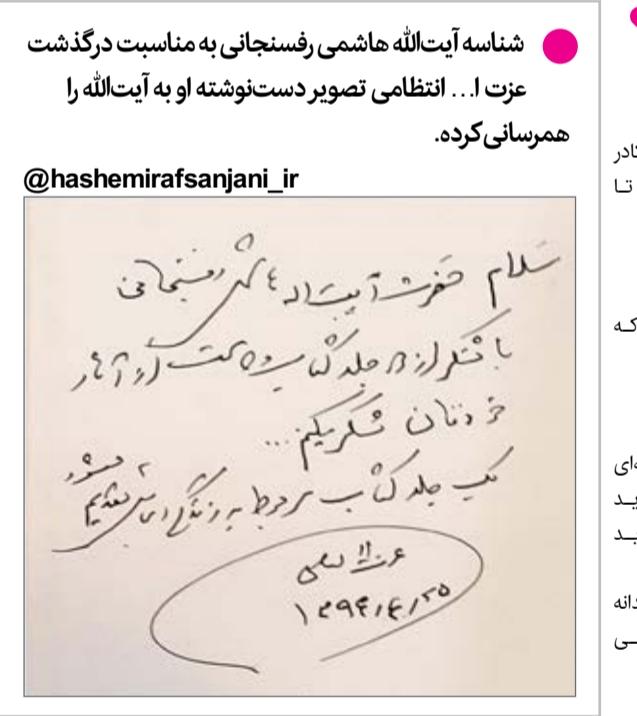 شناسه آیت‌الله هاشمی رفسنجانی به مناسبت درگذشت
عزت ا... انتظامی تصویر دست‌نوشته او به آیت‌الله را
همرسانی کرده.
@hashemirafsanjani_ir
سلام حضرت آیت‌اله هاشمی رفسنجانی
با تشکر از جلد کتاب آثار
خودتان تشکر میکنم...
یک جلد کتاب مربوط به زندگی تقدیم میشود
عزت اله انتظامی
۱۳۹۴/۴/۲۵
کادر
تا
که
ه‌ای
ید
ید
دانه
ی